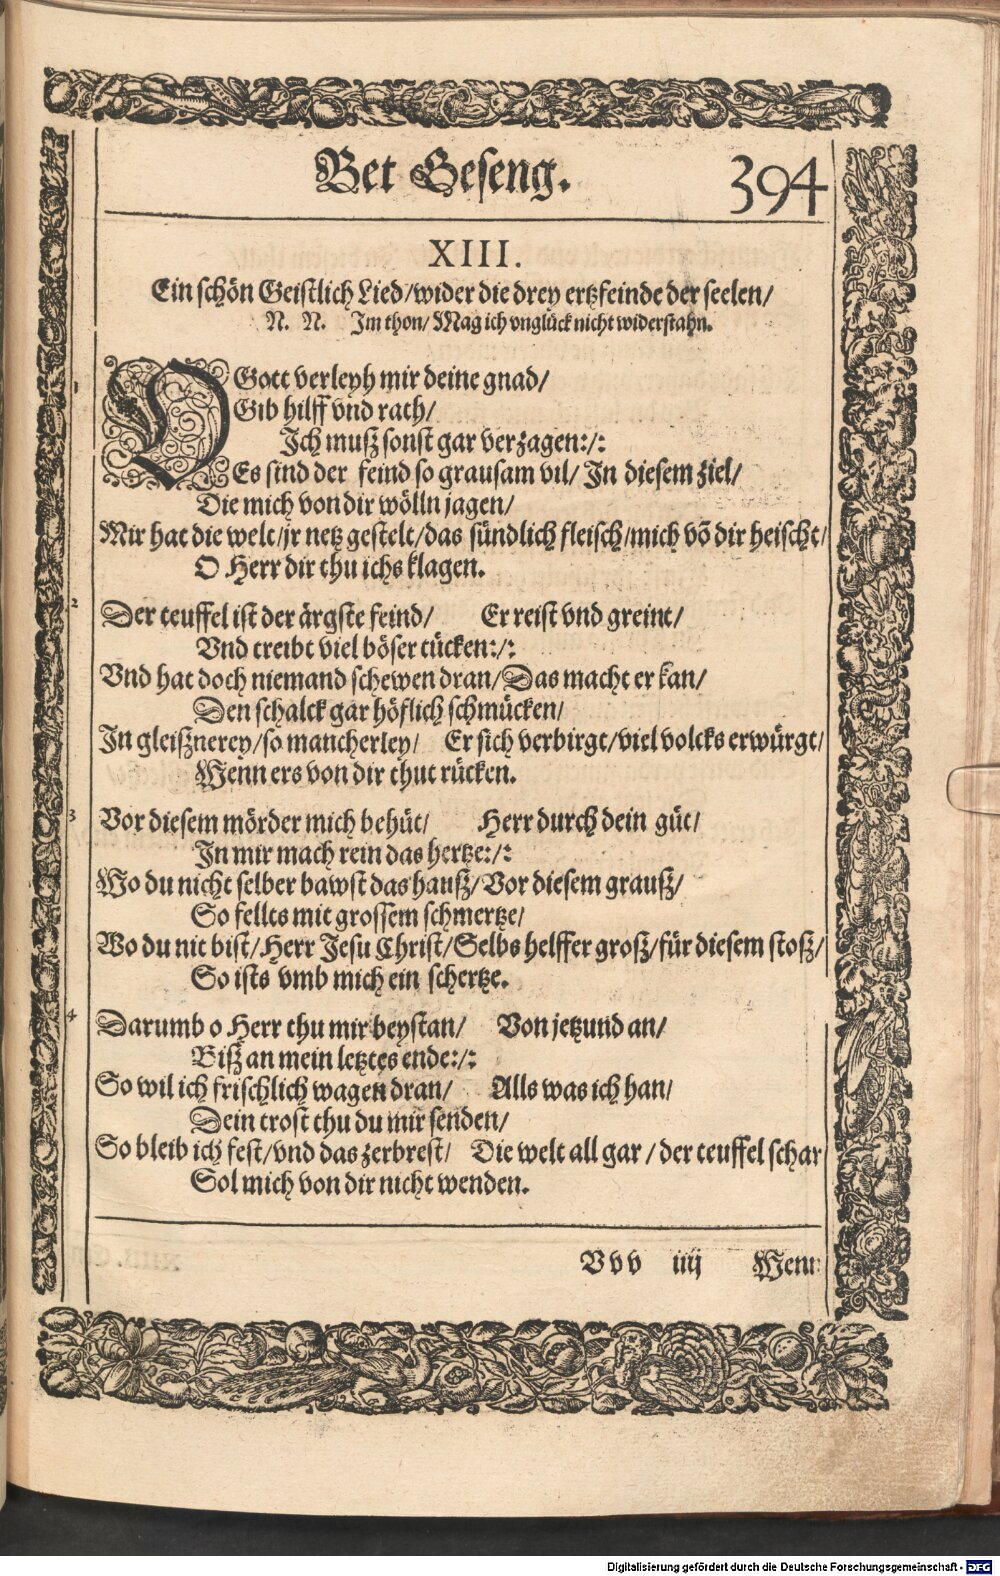 Bet Geseng. 394
XIII.
Ein schön Geistlich Lied/wider die drey ertzfeinde der seelen/
N. N. Im thon/ Mag ich vnglück nicht widerstahn.
1 O Gott verleyh mir deine gnad/
Gib hilff vnd rath/
Ich muß sonst gar verzagen:/:
Es sind der feind so grausam vil/ In diesem ziel/
Die mich von dir wölln jagen/
Mir hat die welt/jr netz gestelt/das sündlich fleisch/mich võ dir heischt/
O Herr dir thu ichs klagen.
2 Der teuffel ist der ärgste feind/ Er reist vnd greint/
Vnd treibt viel böser tücken:/:
Vnd hat doch niemand schewen dran/Das macht er kan/
Den schalck gar höflich schmücken/
In gleißnerey/so mancherley/ Er sich verbirgt/viel volcks erwürgt/
Wenn ers von dir thut rücken.
3 Vor diesem mörder mich behüt/ Herr durch dein güt/
In mir mach rein das hertze:/:
Wo du nicht selber bawst das hauß/Vor diesem grauß/
So fellts mit grossem schmertze/
Wo du nit bist/Herr Jesu Christ/Selbs helffer groß/für diesem stoß/
So ists vmb mich ein schertze.
4 Darumb o Herr thu mir beystan/ Von jetzund an/
Biß an mein letztes ende:/:
So wil ich frischlich wagen dran/ Alls was ich han/
Dein trost thu du mir senden/
So bleib ich fest/vnd das zerbrest/ Die welt all gar/der teuffel schar
Sol mich von dir nicht wenden.
Vvv iiij Wenn
Digitalisierung gefördert durch die Deutsche Forschungsgemeinschaft - DFG